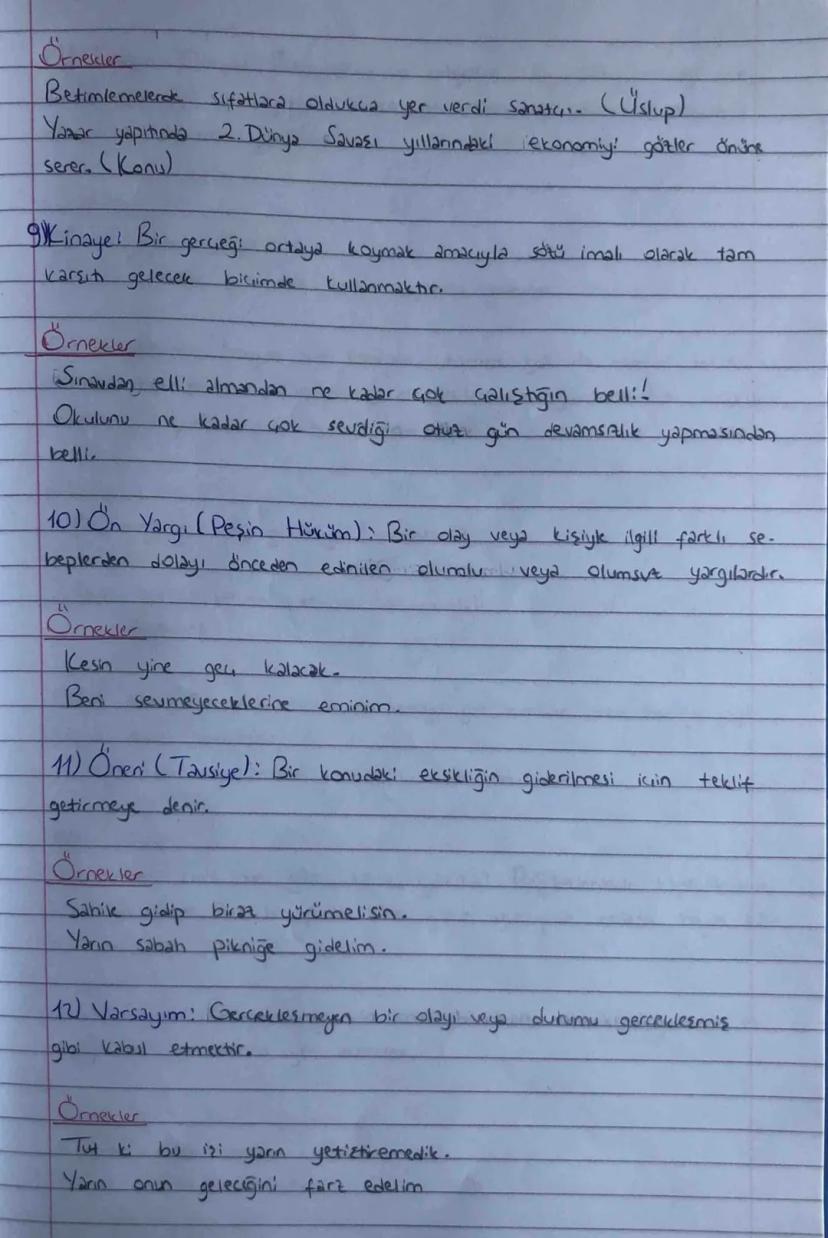 Örnekler
Betimlemelerde sıfatlara oldukça yer verdi sanatçı. (Üslup)
Yazar yapıtında 2. Dünya Savaşı yıllarındaki ekonomiyi gözler önüne
serer. (Konu)
9) Kinaye: Bir gerçeği ortaya koymak amacıyla sözü imalı olarak tam
karşıtı gelecek biçimde kullanmaktır.
Örnekler
Sınavdan elli almandan ne kadar çok çalıştığın belli!
Okulunu ne kadar çok sevdiği otuz gün devamsızlık yapmasından
belli.
10) Ön Yargı (Peşin Hüküm): Bir olay veya kişiyle ilgili farklı se-
beplerden dolayı önceden edinilen olumlu veya olumsuz yargılardır.
Örnekler
Kesin yine geç kalacak.
Beni sevmeyeceklerine eminim.
11) Öneri (Tavsiye): Bir konudaki eksikliğin giderilmesi için teklif
getirmeye denir.
Örnekler
Sahile gidip biraz yürümelisin.
Yarın sabah pikniğe gidelim.
12) Varsayım: Gerçekleşmeyen bir olayı veya durumu gerçekleşmiş
gibi kabul etmektir.
Örnekler
Tut ki bu işi yarın yetiştiremedik.
Yarın onun geleceğini farz edelim